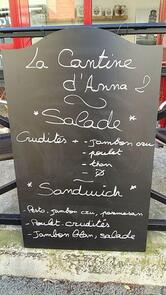 La Cantine
d'Anna
"Salade"
Crudités + - jambon cru
- poulet
- thon
"Sandwich"
Pesto, jambon cru, parmesan
- Poulet crudités
- Jambon blanc, salade